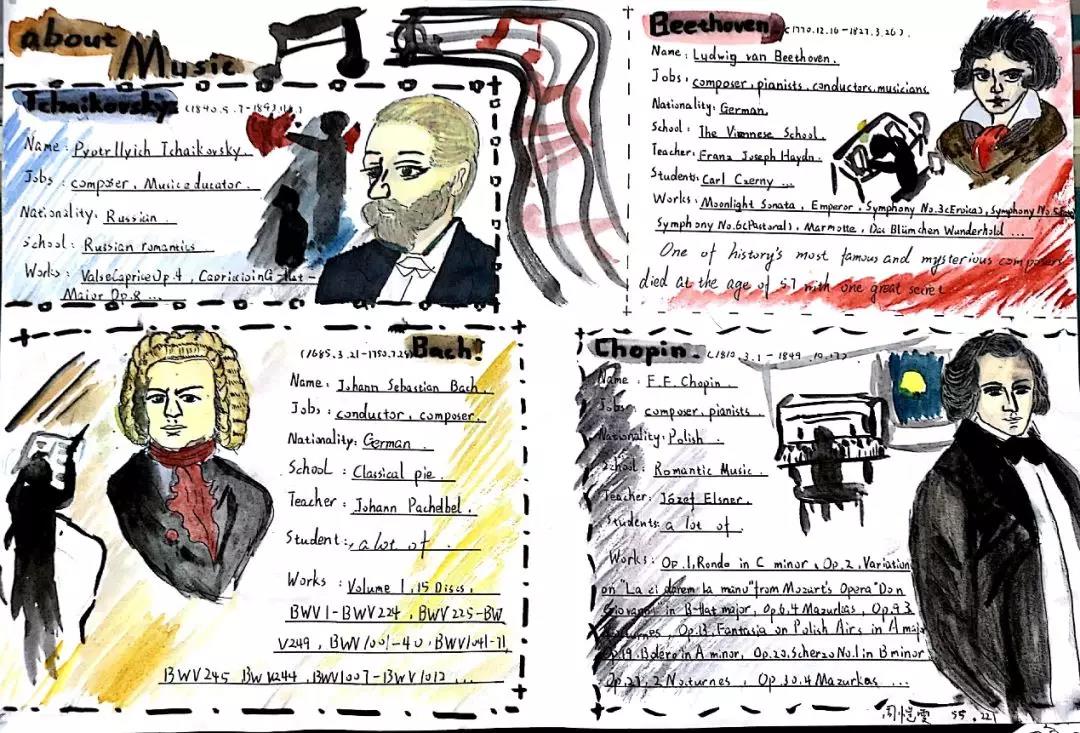 about Music
Tchaikovskiy
Name: Pyotr Ilyich Tchaikovsky.
Jobs: composer, Music educator.
Nationality: Russian.
School: Russian romantics
Works: Valse Caprice Op.4, Capriccio in G-flat-
Maior Op.8...
Beethoven! (1770.12.16-1827.3.26).
Name: Ludwig van Beethoven.
Jobs: composer, pianists, conductors, musicians
Nationality: German.
School: The Viennese School.
Teacher: Franz Joseph Haydn.
Students: Carl Czerny ...
Works: Moonlight Sonata, Emperor, Symphony No.3(Eroica), Symphony No.5
Symphony No.6(Pastoral), Marmotte, Das Blümchen Wunderhold ...
One of history's most famous and mysterious composers
died at the age of 57 with one great secret
(1685.3.21-1750.7.28) Bach!
Name: Johann Sebastian Bach.
Jobs: conductor, composer.
Nationality: German.
School: Classical pie.
Teacher: Johann Pachelbel.
Student: a lot of
Works: Volume 1, 15 Discs,
BWV1-BWV224, BWV225-BW
V249, BWV1001-40, BWV1041-71,
BWV245 BWV244, BWV1007-BWV1012 ...
Chopin. (1810.3.1-1849.10.17)
Name: F.F. Chopin.
Jobs: composer, pianists.
Nationality: Polish.
School: Romantic Music.
Teacher: Józef Elsner.
Students: a lot of.
Works: Op.1, Rondo in C minor, Op.2, Variation
on "La ci darem la mano" from Mozart's Opera "Don
Giovanni" in B-flat major, Op.6.4 Mazurkas, Op.9 3
Nocturnes, Op.13, Fantasia on Polish Airs in A major
Op.19, Bolero in A minor, Op.20, Scherzo No.1 in B minor
Op.27, 2 Nocturnes, Op.30.4 Mazurkas ...